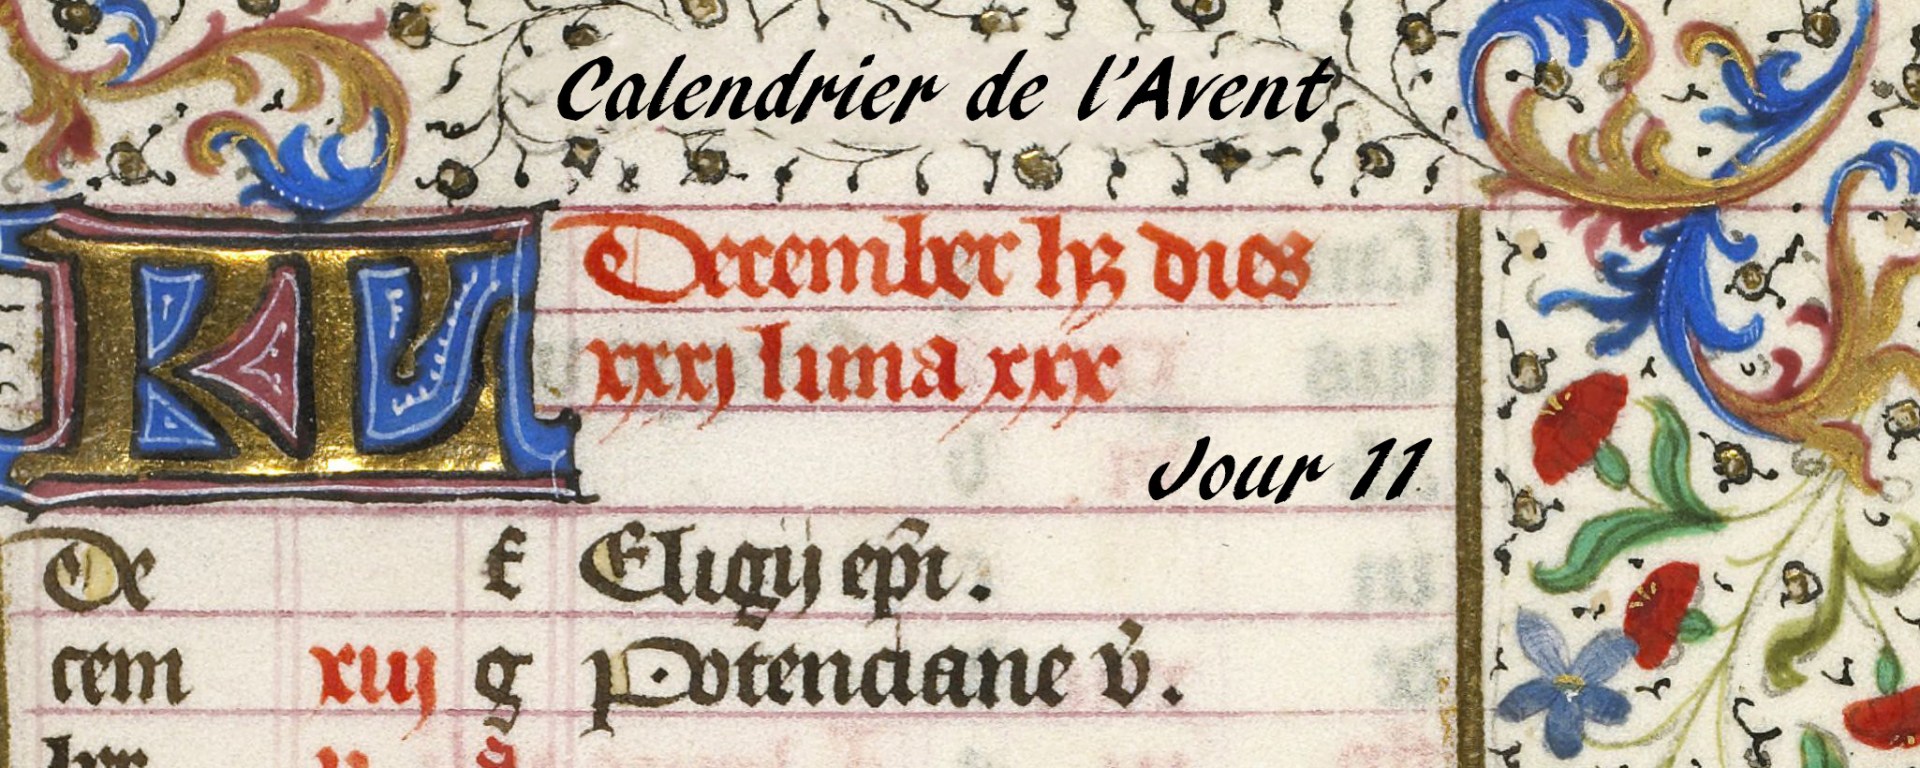 Calendrier de l'Avent
KL December hꝫ dies
xxxj luna xxx
Jour 11
De f Eligij ep̄i.
cem xiij g Potenciane v̄.